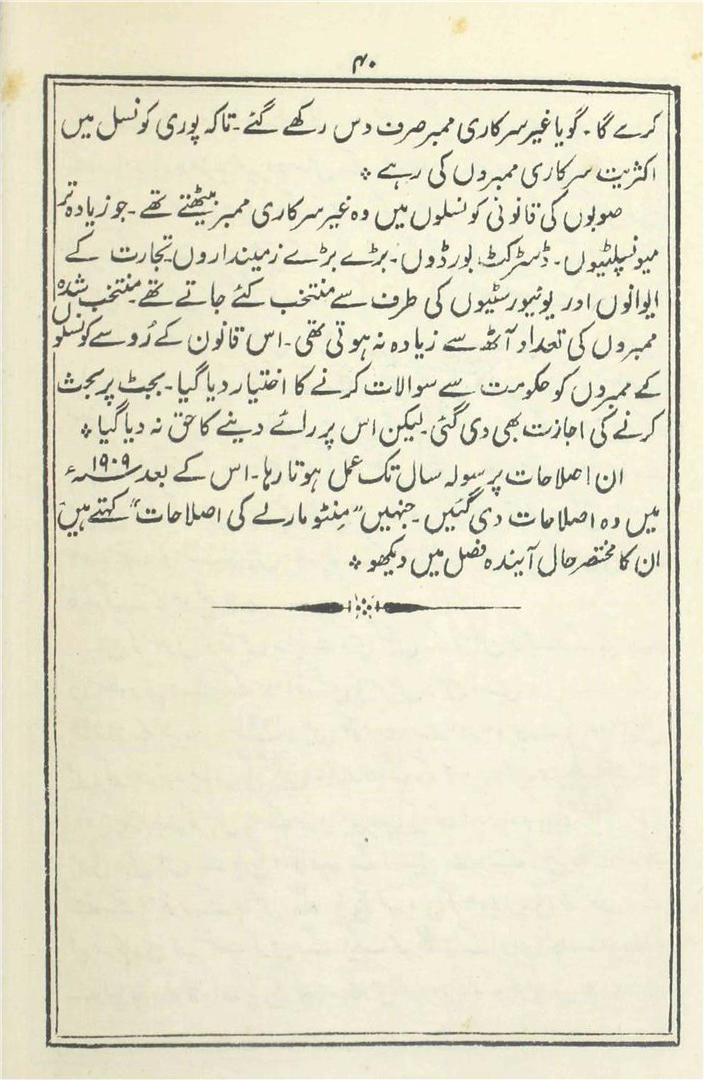 ۴۰
کرے گا۔ گویا غیر سرکاری ممبر صرف دس رکھے گئے۔ تاکہ پوری کونسل میں
اکثریت سرکاری ممبروں کی رہے ٭
صوبوں کی قانونی کونسلوں میں وہ غیر سرکاری ممبر بیٹھتے تھے۔ جو زیادہ تر
میونسپلٹیوں۔ ڈسٹرکٹ بورڈوں۔ بڑے بڑے زمینداروں۔ تجارت کے
ایوانوں اور یونیورسٹیوں کی طرف سے منتخب کئے جاتے تھے۔ منتخب شدہ
ممبروں کی تعداد آٹھ سے زیادہ نہ ہوتی تھی۔ اس قانون کے رُو سے کونسلوں
کے ممبروں کو حکومت سے سوالات کرنے کا اختیار دیا گیا۔ بجٹ پر بحث
کرنے کی اجازت بھی دی گئی۔ لیکن اس پر رائے دینے کا حق نہ دیا گیا ٭
ان اصلاحات پر سولہ سال تک عمل ہوتا رہا۔ اس کے بعد ۱۹۰۹ء
میں وہ اصلاحات دی گئیں۔ جنہیں "مِنٹو مارلے کی اصلاحات" کہتے ہیں
ان کا مختصر حال آیندہ فصل میں دیکھو ٭